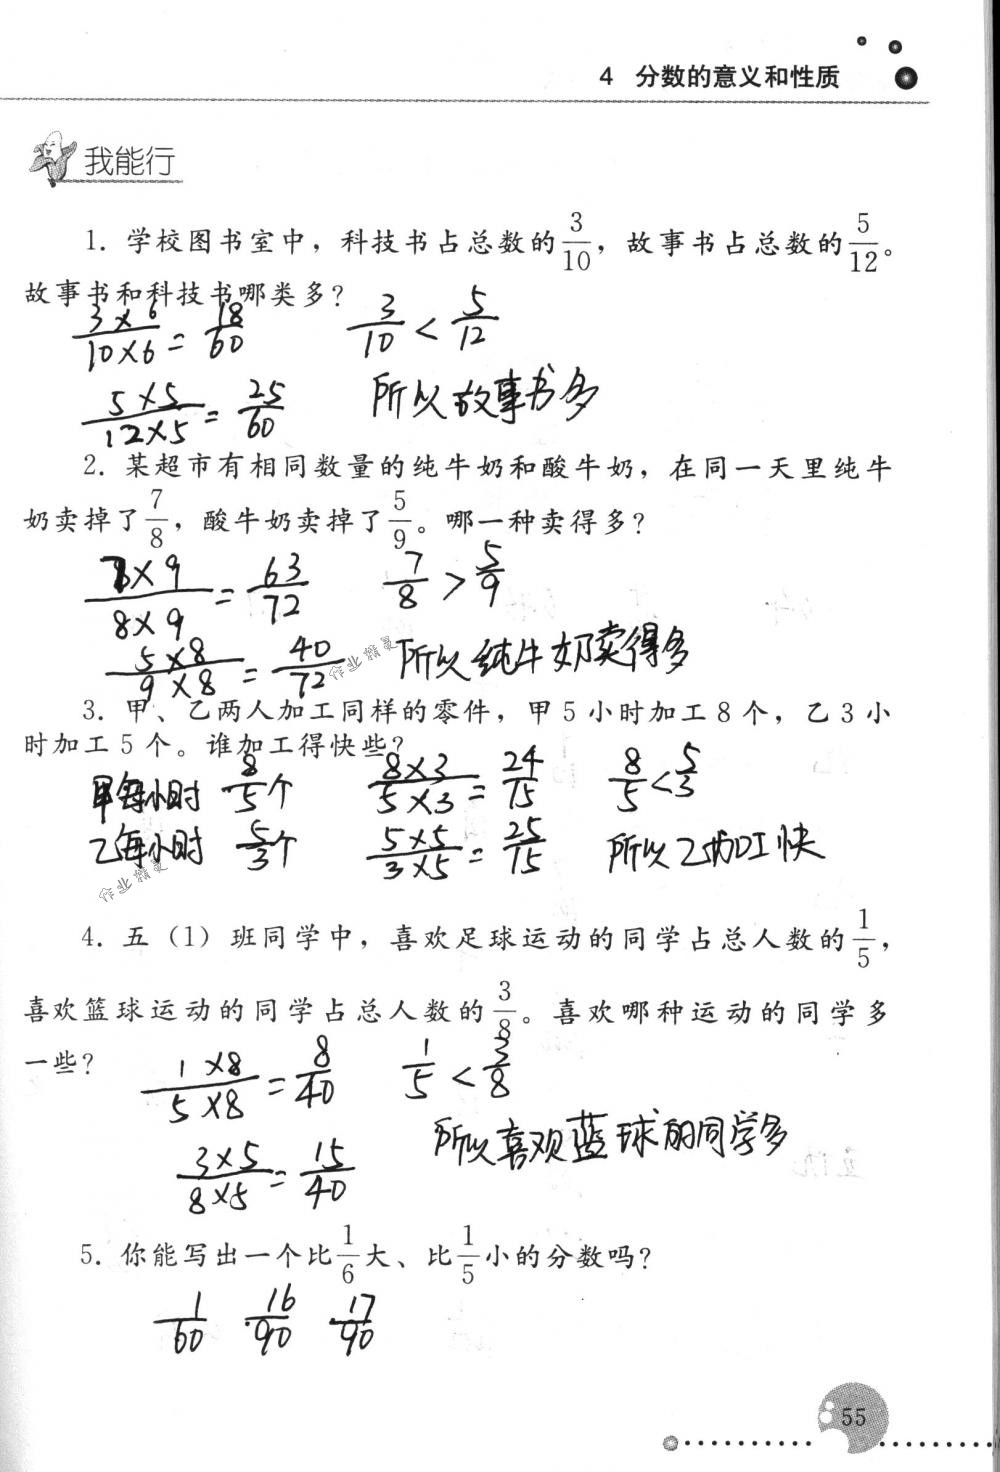 4 分数的意义和性质
我能行
1. 学校图书室中，科技书占总数的3/10，故事书占总数的5/12。
故事书和科技书哪类多？
3×6/10×6=18/60 3/10<5/12
5×5/12×5=25/60 所以故事书多
2. 某超市有相同数量的纯牛奶和酸牛奶，在同一天里纯牛
奶卖掉了7/8，酸牛奶卖掉了5/9。哪一种卖得多？
7×9/8×9=63/72 7/8>5/9
5×8/9×8=40/72 所以纯牛奶卖得多
作业精灵
3. 甲、乙两人加工同样的零件，甲5小时加工8个，乙3小
时加工5个。谁加工得快些？
甲每小时8/5个 8×3/5×3=24/15 8/5<5/3
乙每小时5/3个 5×5/3×5=25/15 所以乙加工快
作业精灵
4. 五（1）班同学中，喜欢足球运动的同学占总人数的1/5，
喜欢篮球运动的同学占总人数的3/8。喜欢哪种运动的同学多
一些？
1×8/5×8=8/40 1/5<3/8
3×5/8×5=15/40 所以喜欢蓝球的同学多
5. 你能写出一个比1/6大、比1/5小的分数吗？
1/60 16/90 17/90
55